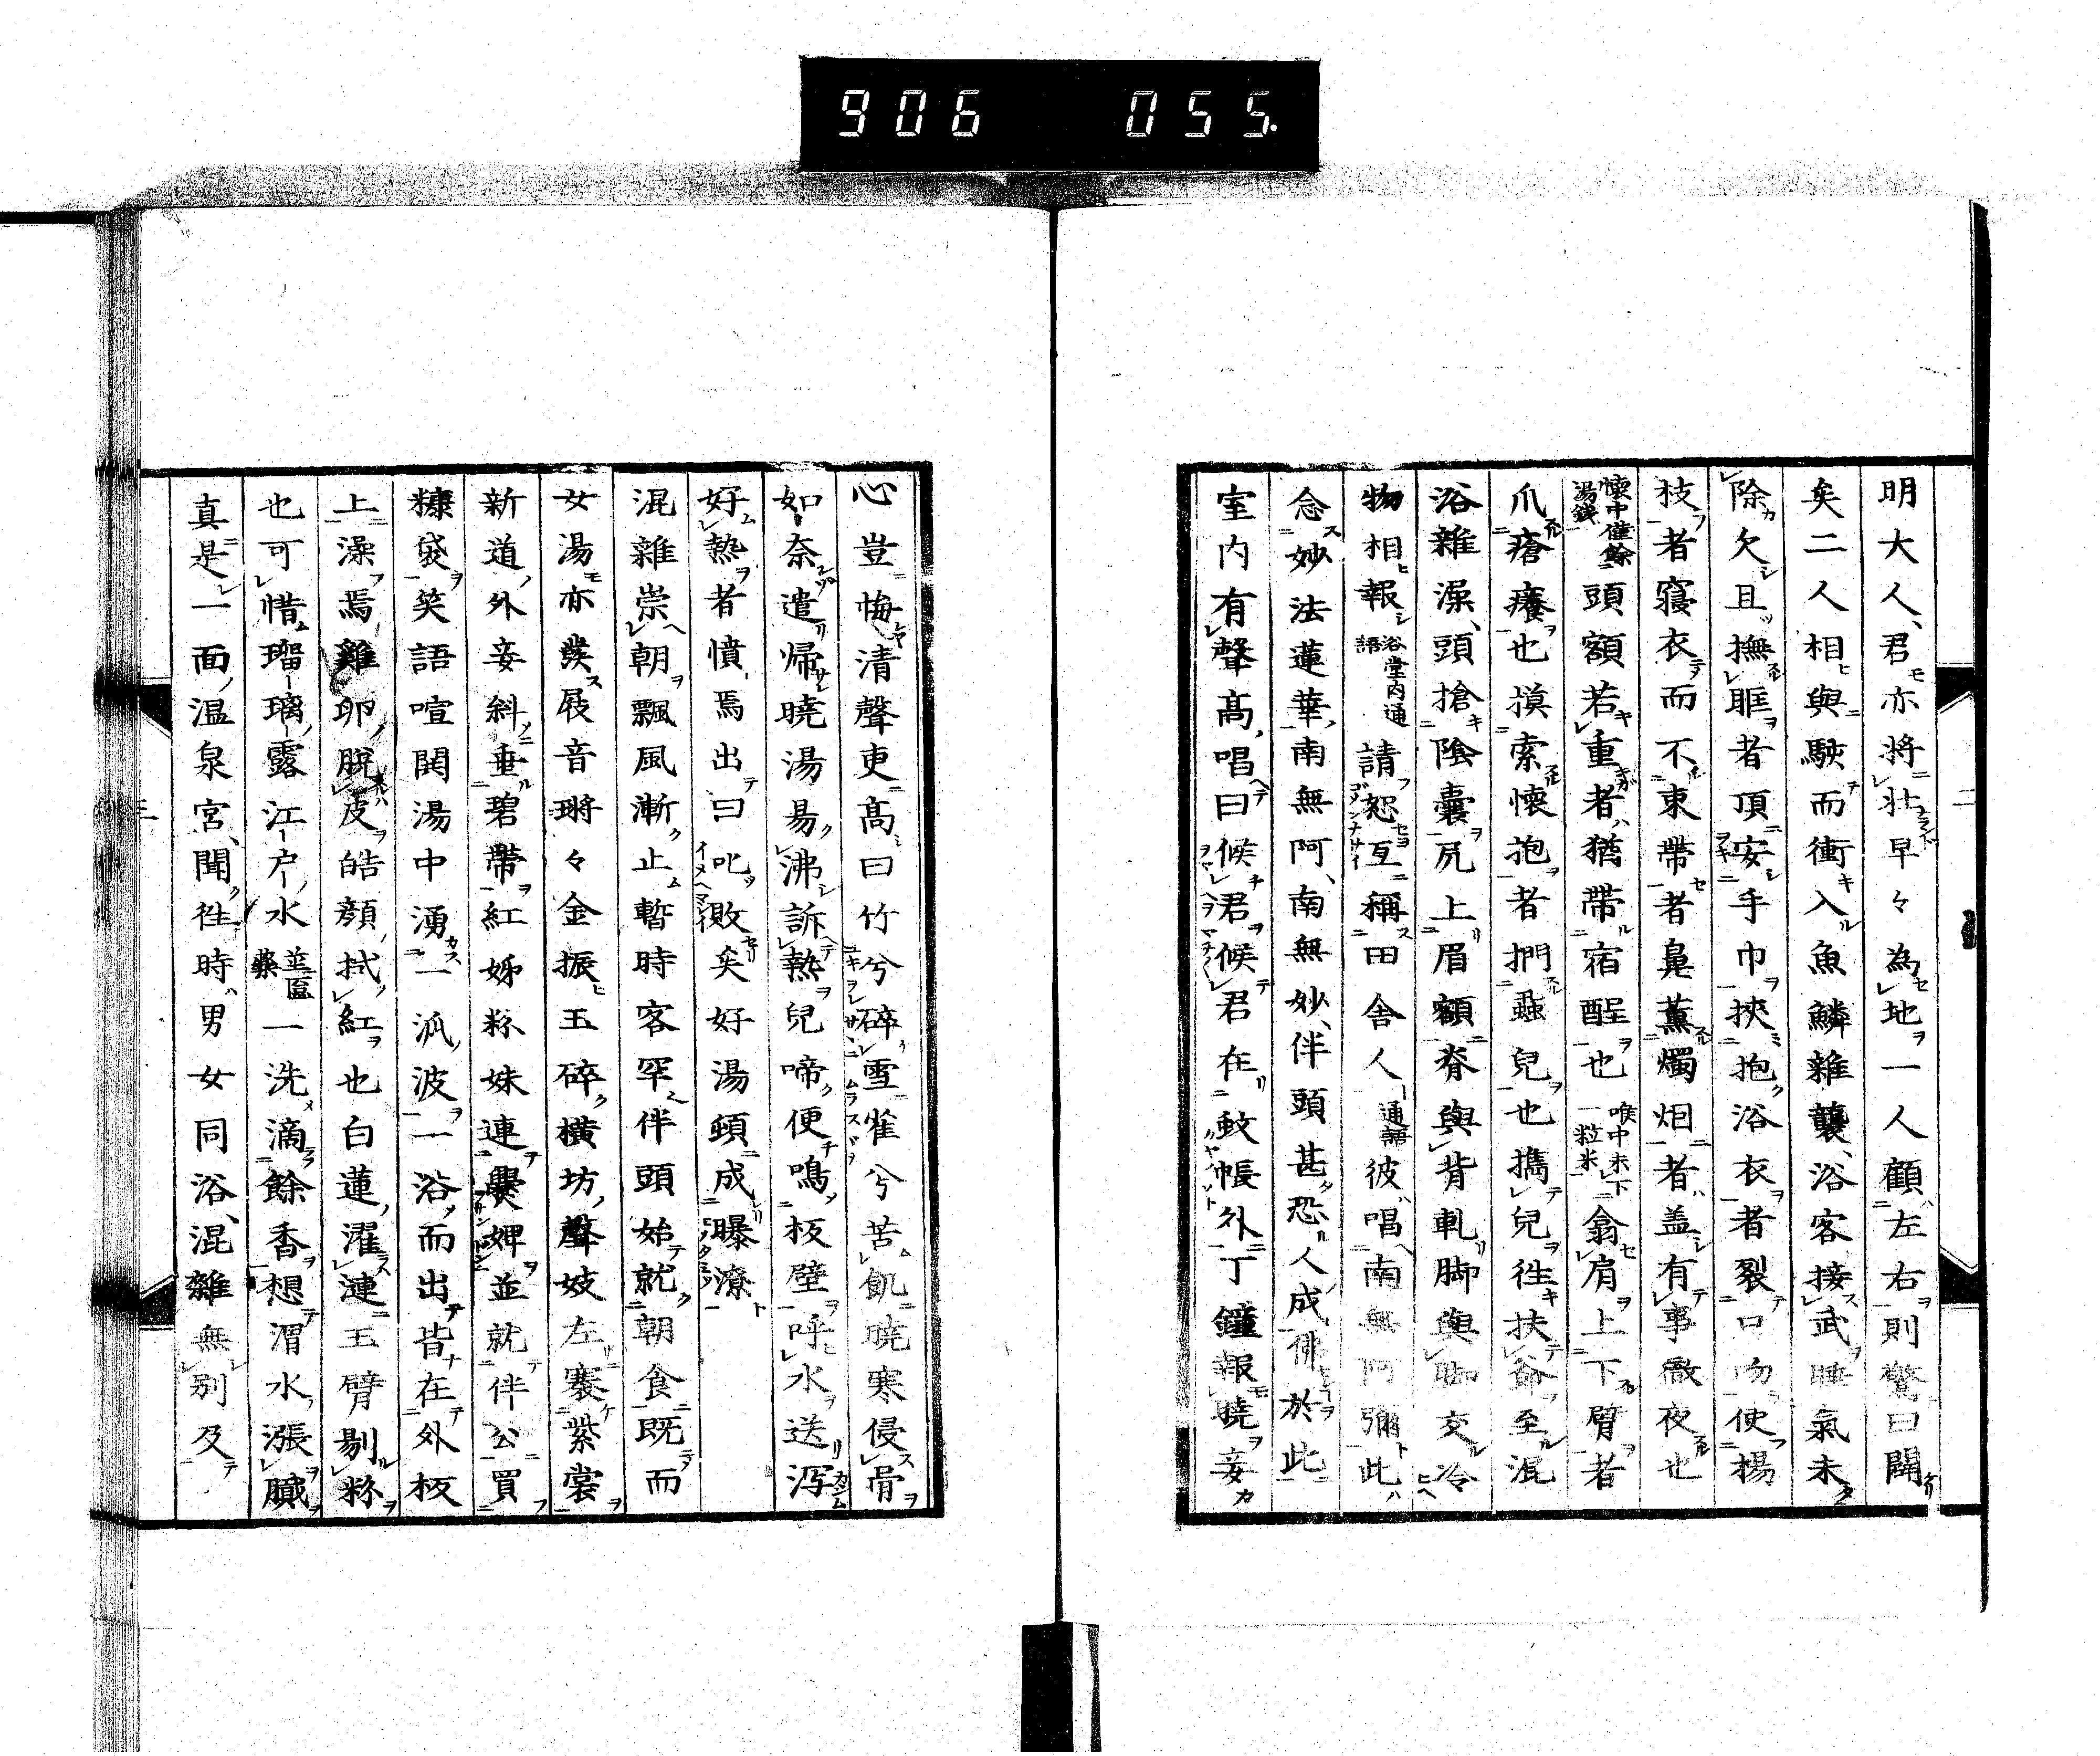 906 055.
明大人、君亦将壮早々為地一人顧左右則驚曰開
矣二人相與駃而衝入魚鱗雜襲、浴客接武睡氣未
除欠且撫眶者頂安手巾挾抱浴衣者裂口吻使楊
枝者寢衣而不束帶者鼻薫燭烟者盖有事徹夜也
懷中僅餘湯錢頭額若重者猶帶宿酲也喉中未下一粒米翕肩上下臂者
爪瘡癢也摸索懷抱者捫蟲兒也攜兒徃扶爺至混
浴雜澡、頭搶陰囊尻上眉額脊與背軋脚與脚交冷
物相報浴堂内通語請恕互稱田舍人通語彼唱南無阿彌此
念妙法蓮華南無阿、南無妙、伴頭甚恐人成佛於此
室内有聲高唱曰候君候君在蚊帳外丁鐘報曉妾
心豈悔清聲更高曰竹兮碎雪雀兮苦飢曉寒侵骨
如奈遣帰曉湯易沸訴熱兒啼便鳴板壁呼水送瀉
好熱者憤焉出曰叱敗矣好湯頓成曝潦
混雜崇朝飄風漸止暫時客罕伴頭始就朝食既而
女湯亦發屐音琳々金振玉碎横坊聲妓左褰紫裳
新道外妾斜垂碧帶紅姊粉妹連嬰婢並就伴公買
糠袋笑語喧鬨湯中湧一派波一浴而出皆在外板
上澡焉雞卵脱皮皓顔拭紅也白蓮濯漣玉臂剔粉
也可惜瑠璃露江戸水並匳藥一洗滴餘香想渭水漲膩
真是一面温泉宮、聞徃時男女同浴、混雜無別及
二
三